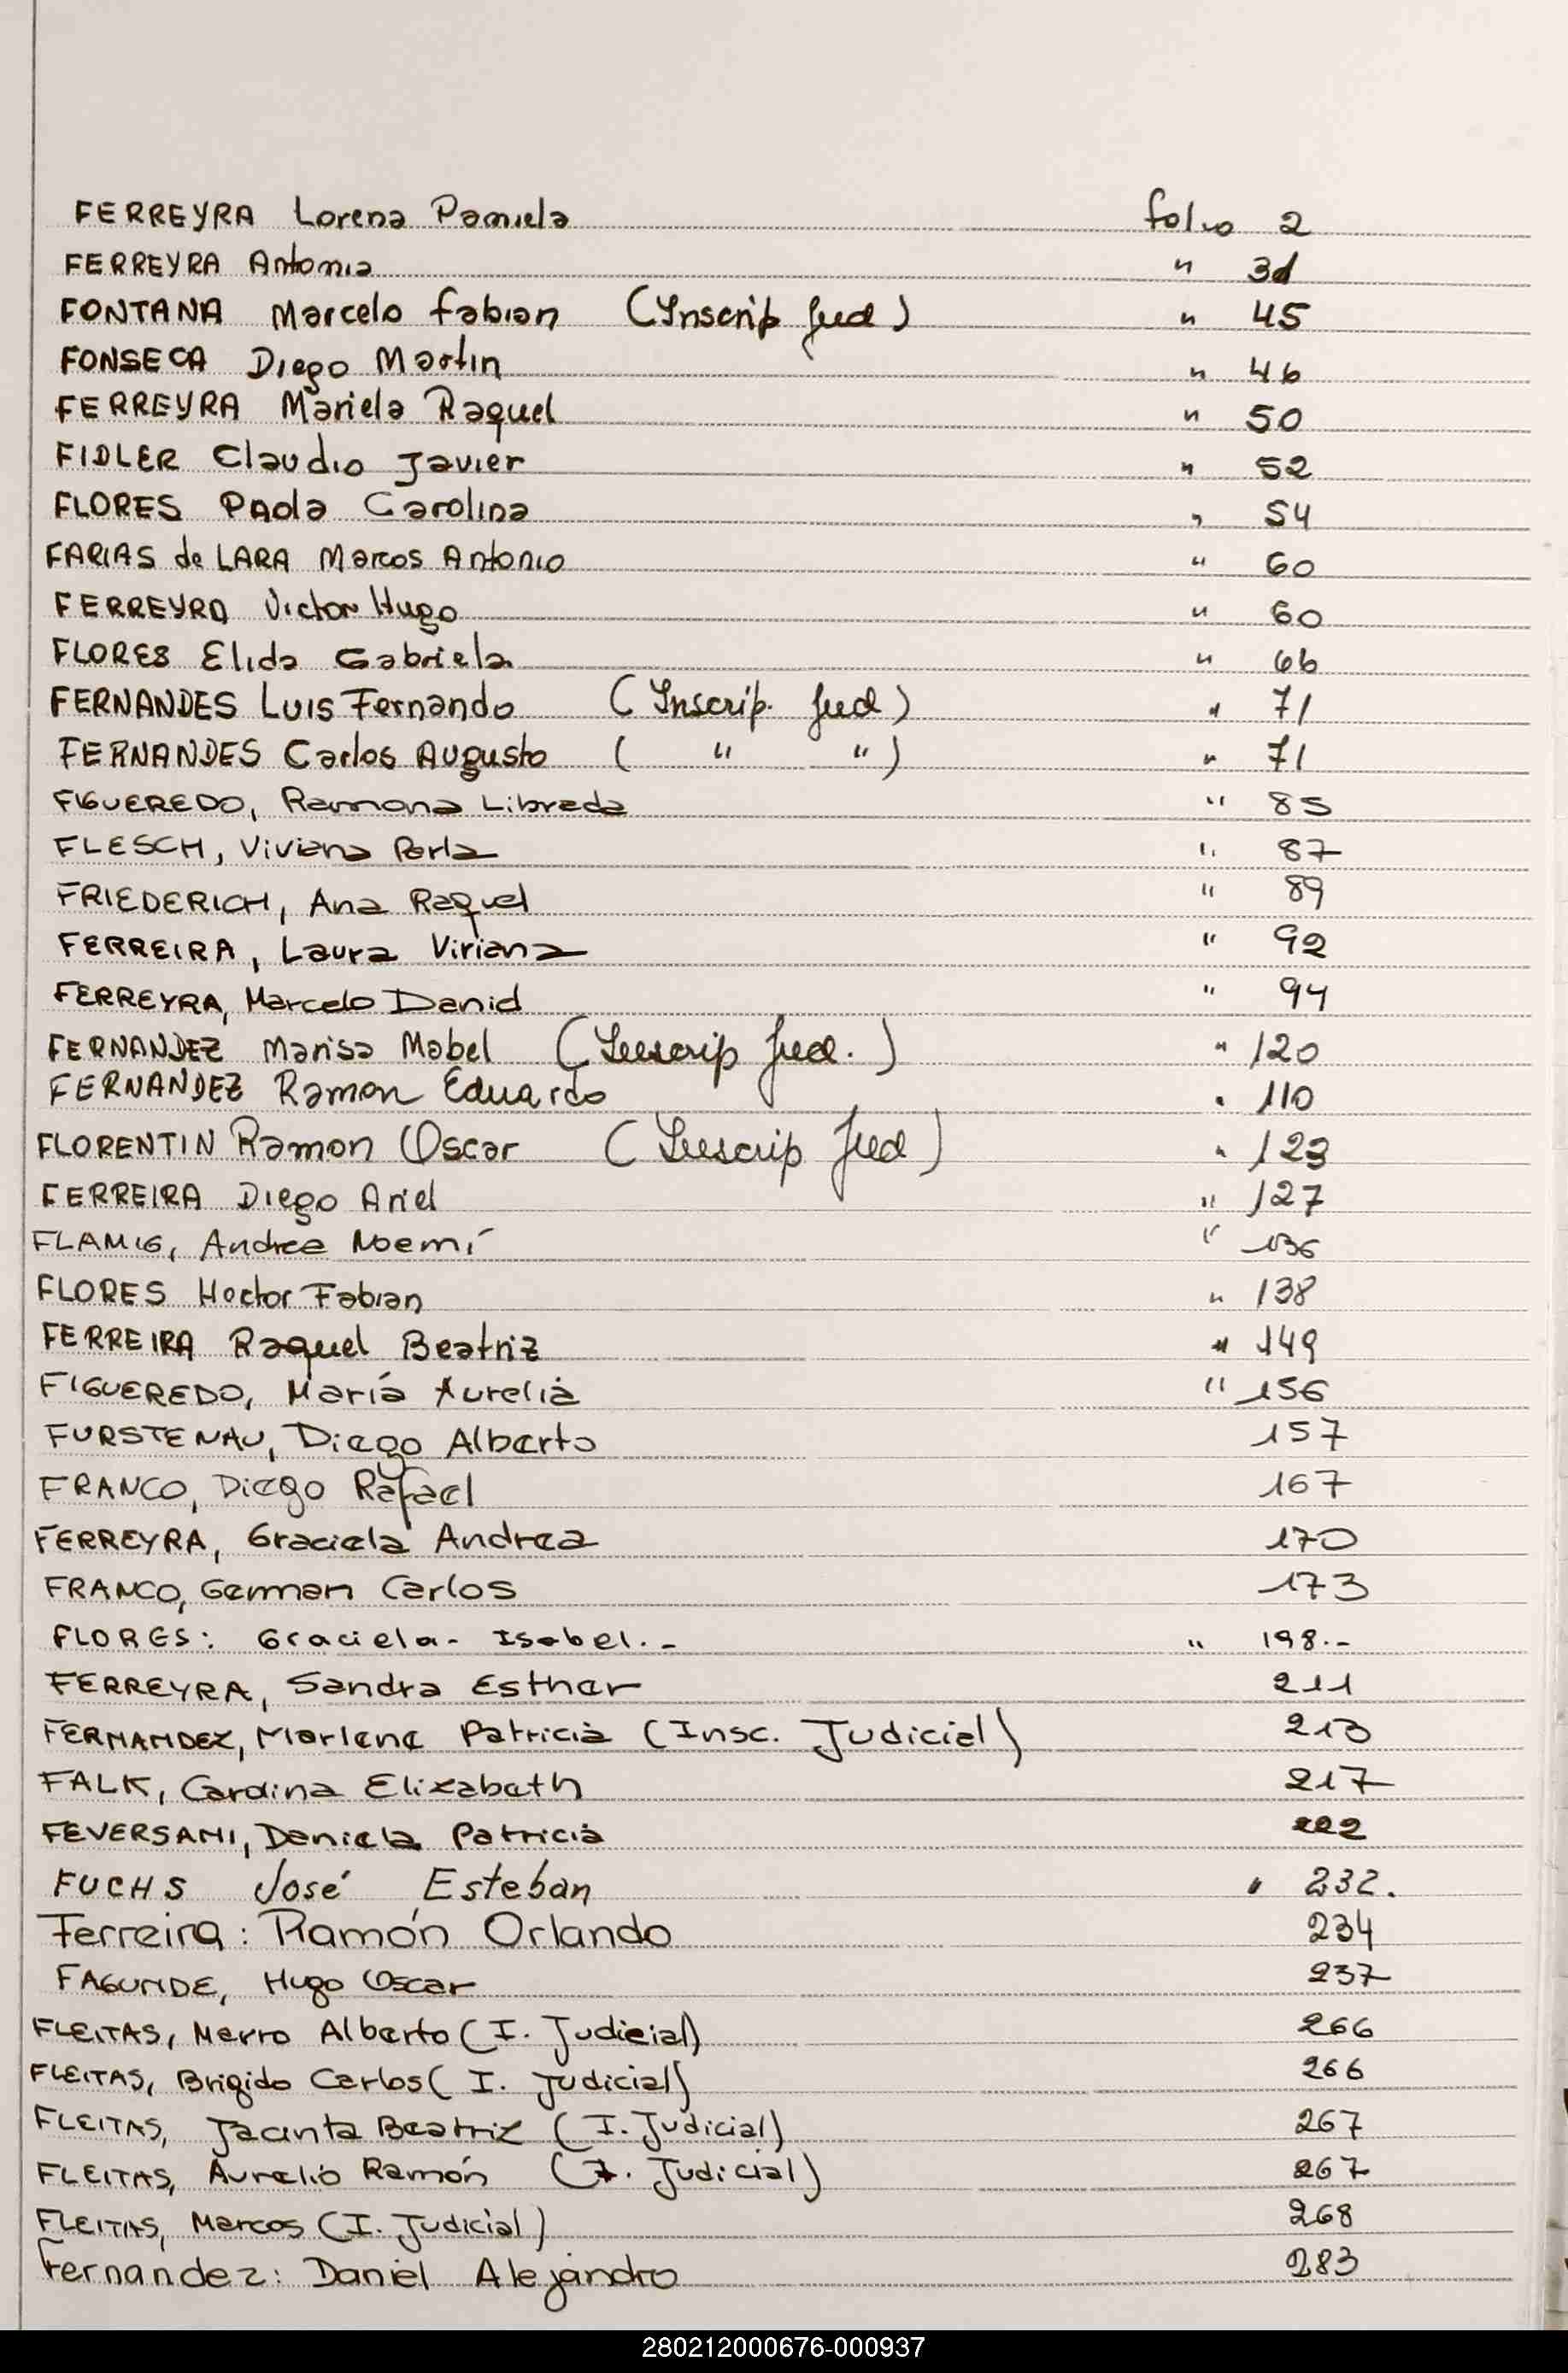 FERREYRA Lorena Pamela folio 2
FERREYRA Antonia " 31
FONTANA Marcelo Fabian (Inscrip Jud) " 45
FONSECA Diego Martin " 46
FERREYRA Mariela Raquel " 50
FIDLER Claudio Javier " 52
FLORES Paola Carolina " 54
FARIAS de LARA Marcos Antonio " 60
FERREYRA Victor Hugo " 60
FLORES Elida Gabriela " 66
FERNANDES Luis Fernando (Inscrip. Jud) " 71
FERNANDES Carlos Augusto ( " " ) " 71
FIGUEREDO, Ramona Librada " 85
FLESCH, Viviana Perla " 87
FRIEDERICH, Ana Raquel " 89
FERREIRA, Laura Viviana " 92
FERREYRA, Marcelo Daniel " 94
FERNANDEZ Marisa Mabel (Inscrip Jud.) " 120
FERNANDEZ Ramon Eduardo " 110
FLORENTIN Ramon Oscar (Inscrip Jud) " 123
FERREIRA Diego Ariel " 127
FLAMIG, Andrea Noemí " 136
FLORES Hector Fabian " 138
FERREIRA Raquel Beatriz " 149
FIGUEREDO, María Aurelia " 156
FURSTENAU, Diego Alberto 157
FRANCO, Diego Rafael 167
FERREYRA, Graciela Andrea 170
FRANCO, German Carlos 173
FLORES: Graciela- Isabel.- " 198.-
FERREYRA, Sandra Esther 211
FERNANDEZ, Marlene Patricia (Insc. Judicial) 213
FALK, Carolina Elizabeth 217
FEVERSANI, Daniela Patricia 222
FUCHS José Esteban " 232.
Ferreira: Ramón Orlando 234
FAGUNDE, Hugo Oscar 237
FLEITAS, Mario Alberto (I. Judicial) 266
FLEITAS, Brigido Carlos (I. Judicial) 266
FLEITAS, Jacinta Beatriz (I. Judicial) 267
FLEITAS, Aurelio Ramón (I. Judicial) 267
FLEITAS, Marcos (I. Judicial) 268
Fernandez: Daniel Alejandro 283
280212000676-000937